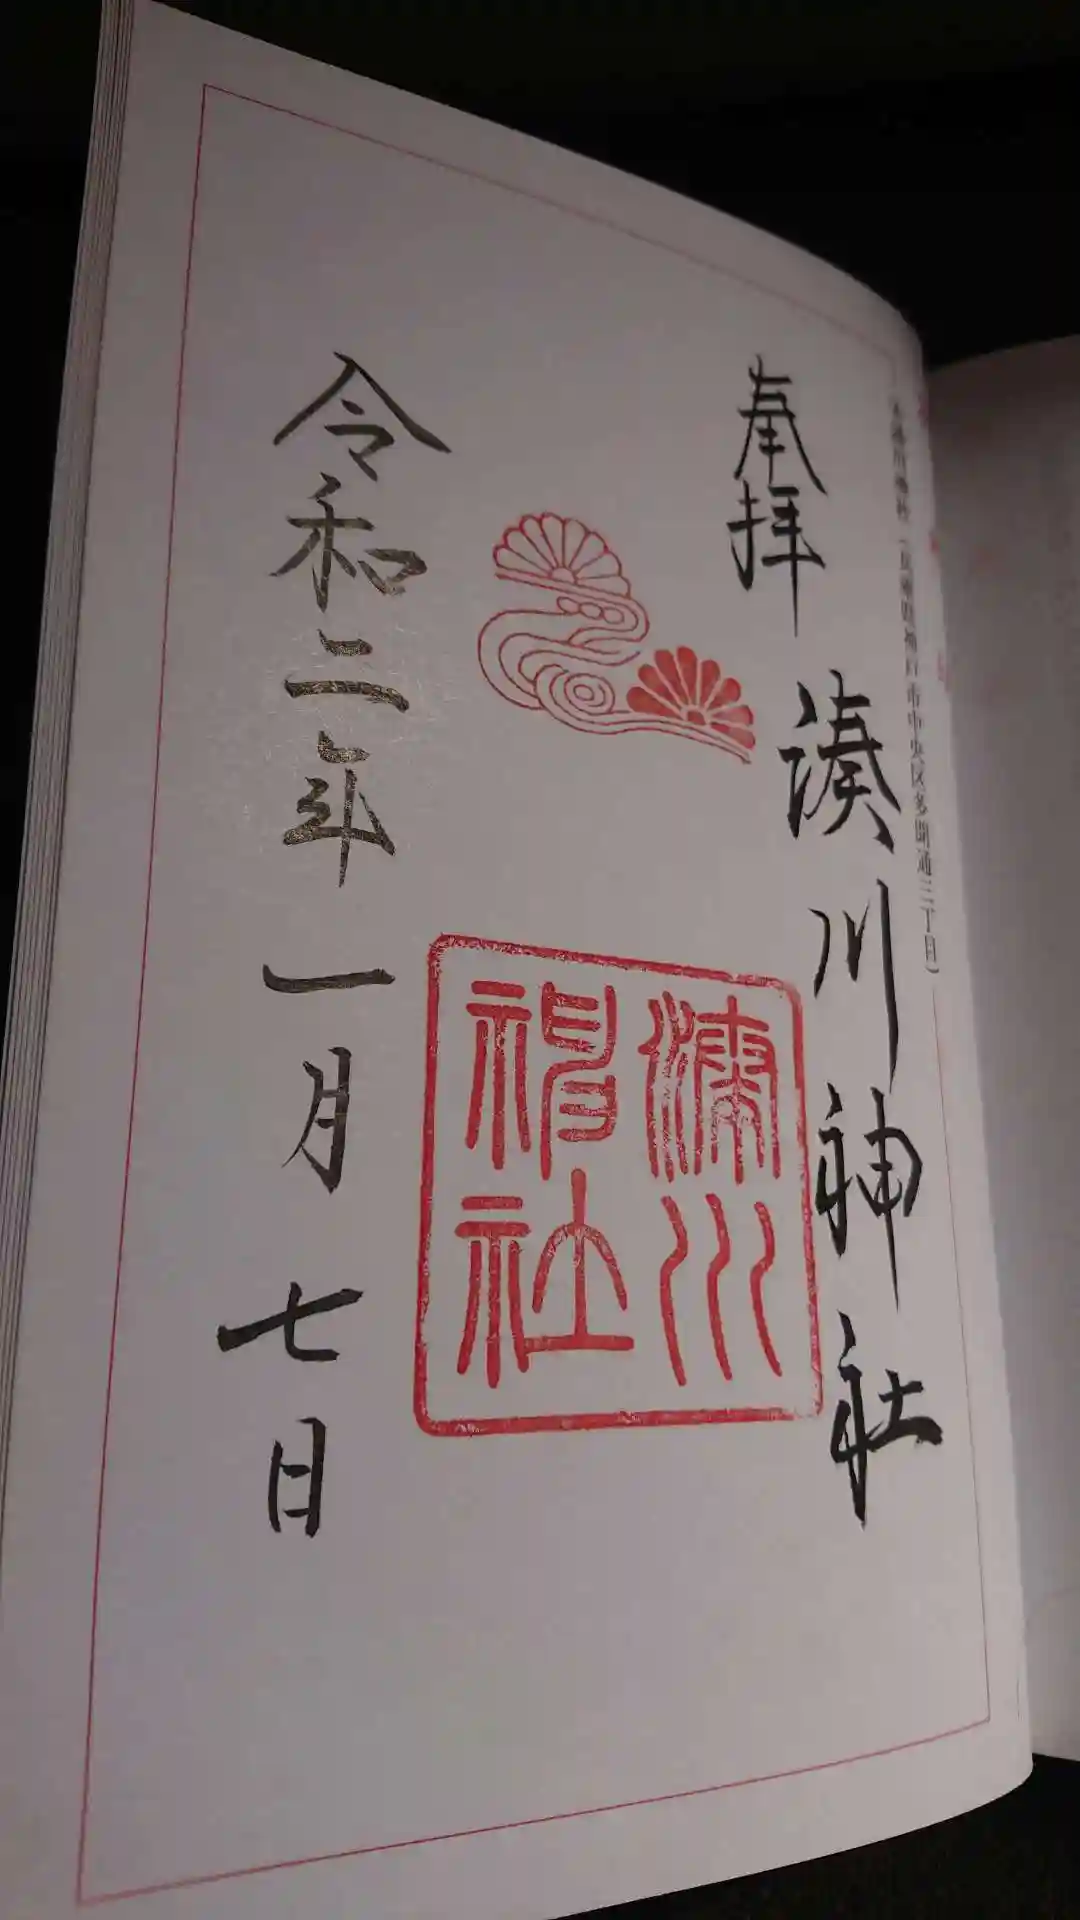 兵庫県神戸市中央区多聞通三丁目)
奉拝
湊川神社
湊川
神社
令和二年一月七日